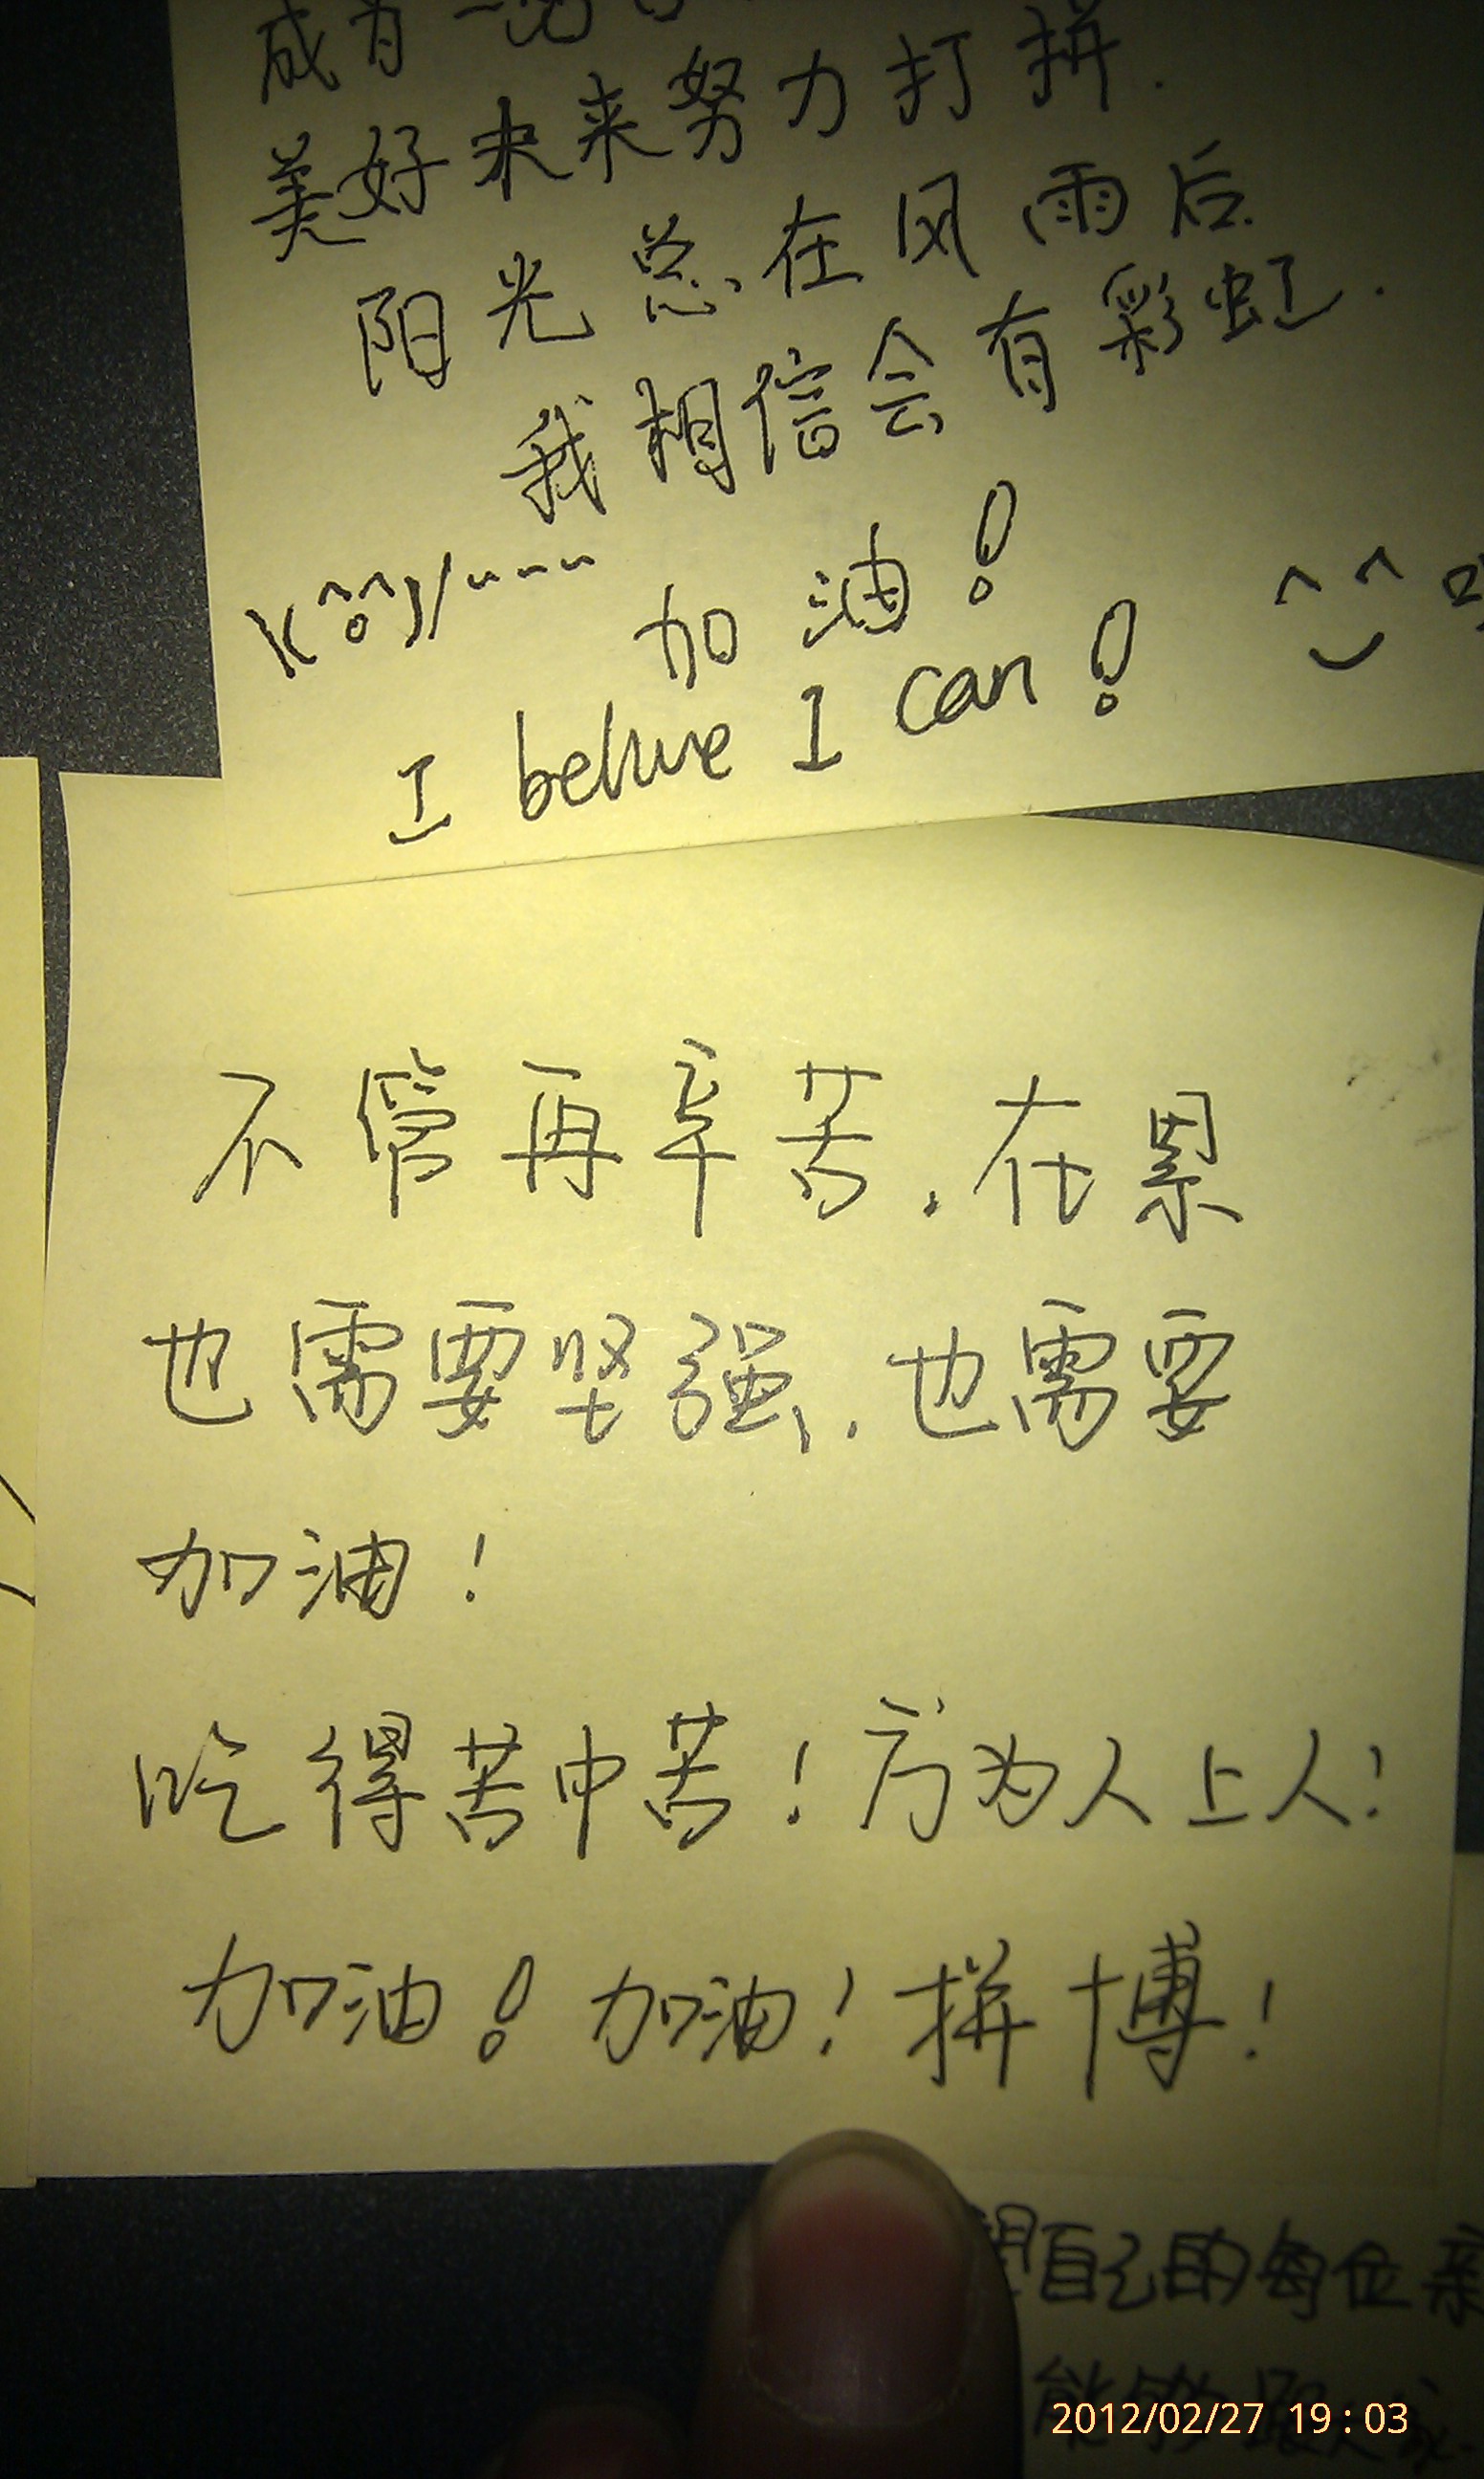 美好未来努力打拼.
阳光总在风雨后.
我相信会有彩虹.
加油!
I belive I can!
不管再辛苦.在累
也需要坚强.也需要
加油!
吃得苦中苦!方为人上人!
加油!加油!拼博!
自己的每位亲
能够
2012/02/27 19:03